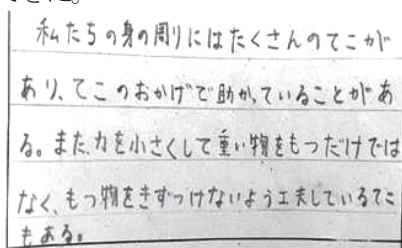 私たちの身の周りにはたくさんのてこが
あり、てこのおかげで助かっていることがあ
る。また、力を小さくして重い物をもつだけでは
なく、もつ物をきずつけないよう工夫しているてこ
もある。